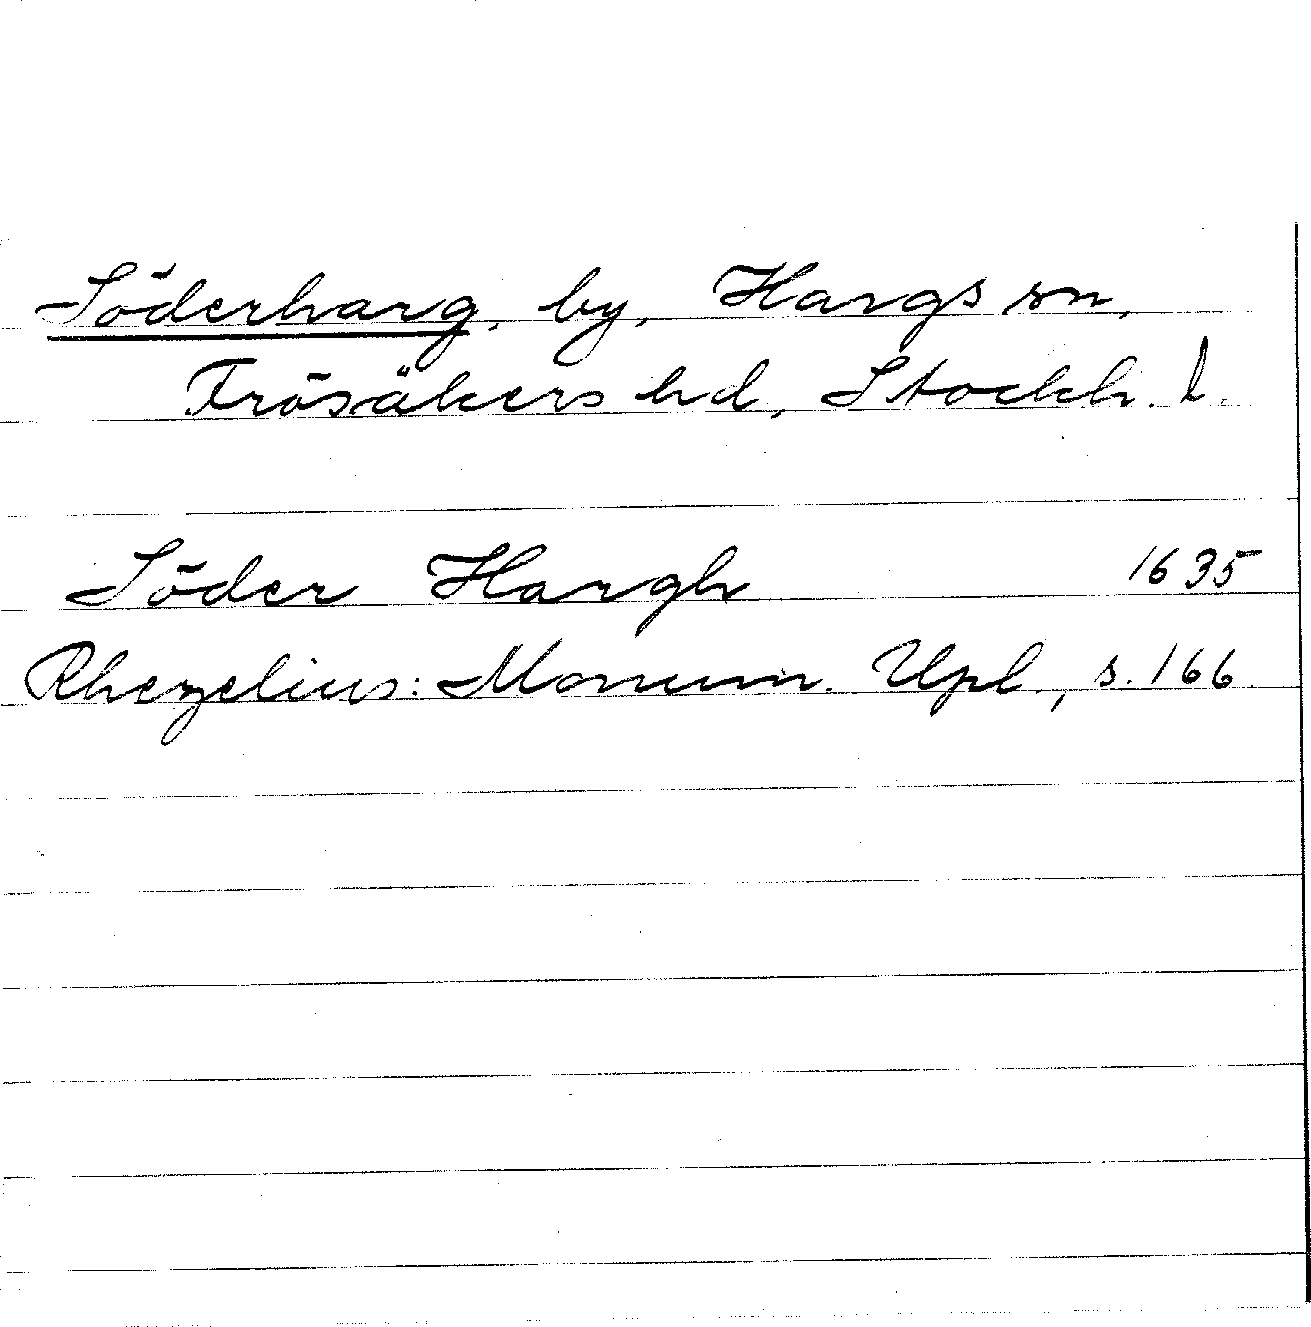 Söderharg, by, Hargs sn,
Frösåkers hd, Stockh. l.
Söder Hargh 1635
Rhezelius: Monum. Upl., s. 166